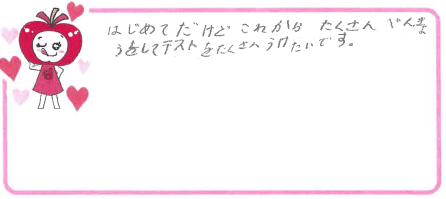 はじめてだけど これから たくさん べんきょ
うをしてテストをたくさんうけたいです。